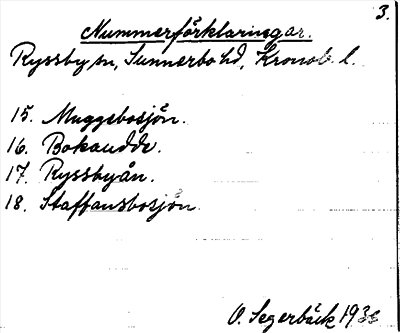 3.
Nummerförklaringar.
Ryssby sn, Sunnerbo hd, Kronob. l.
15. Muggebosjön.
16. Bokaudde.
17. Ryssbyån.
18. Staffansbosjön.
O. Segerbäck